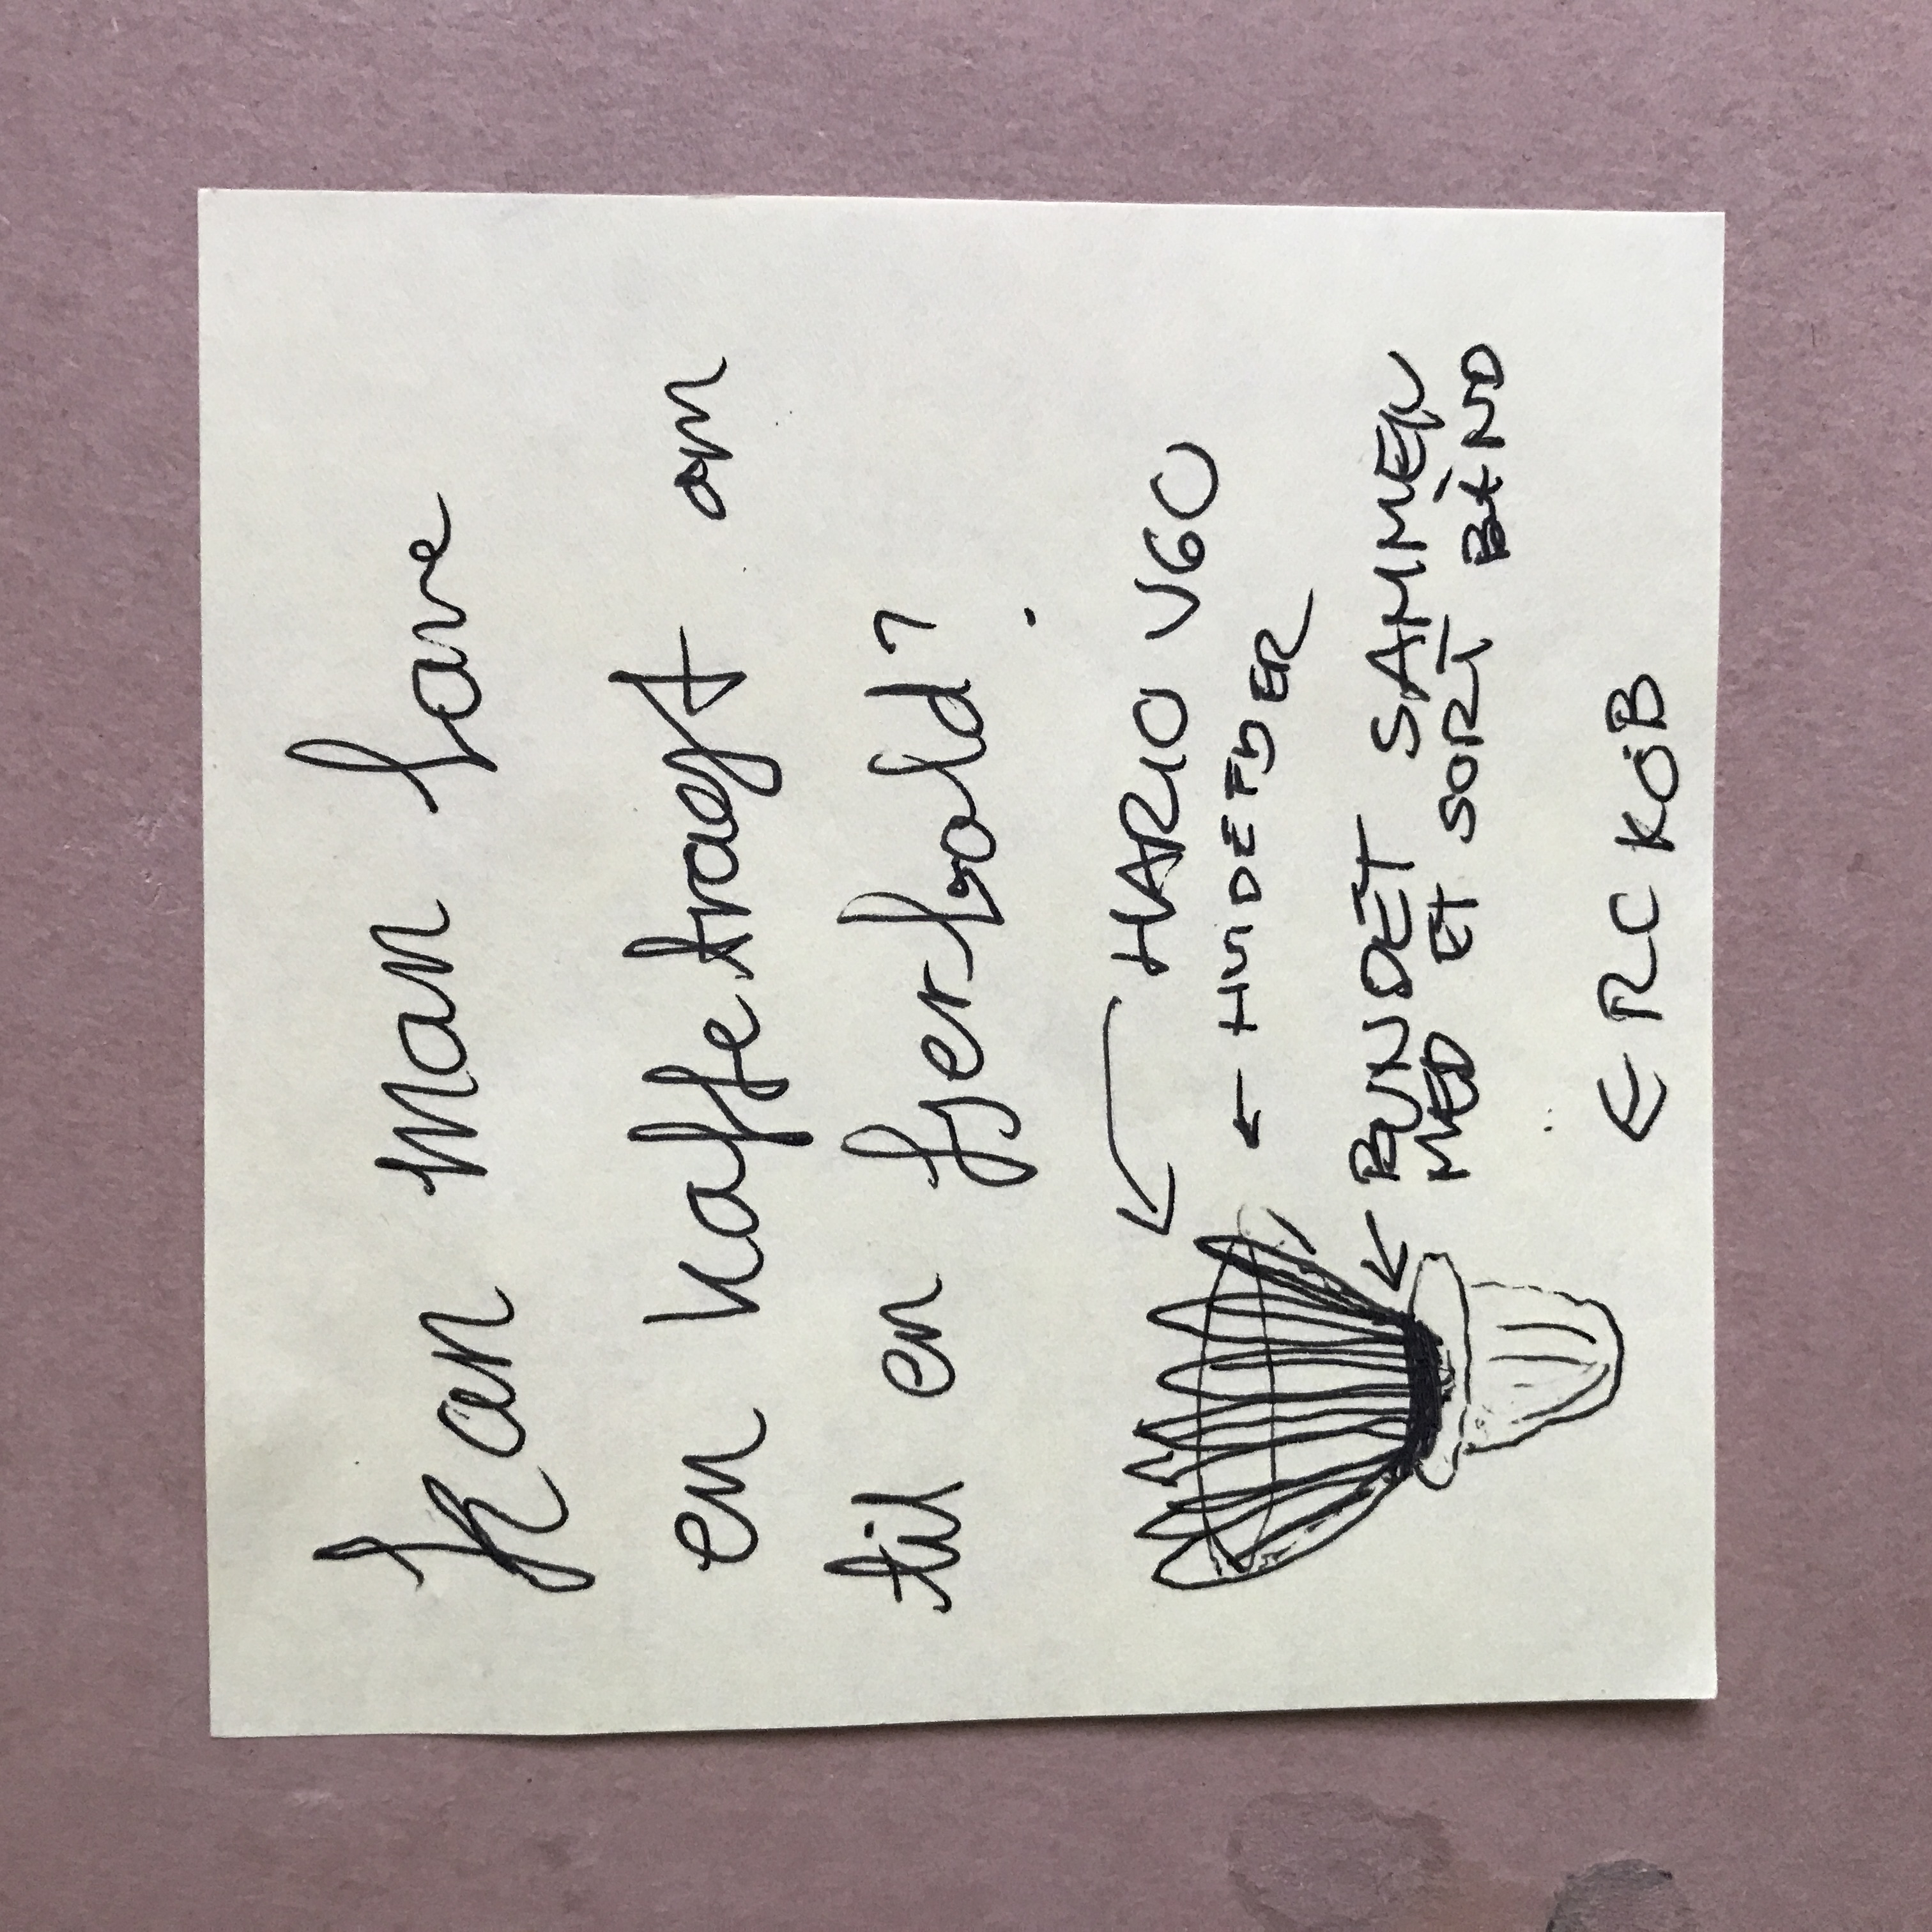 Kan man lave
en kaffetragt om
til en fjerbold?
HARIO V60
HVIDE FJER
BUNDET SAMMEN
MED ET SORT BÅND
RC KØB